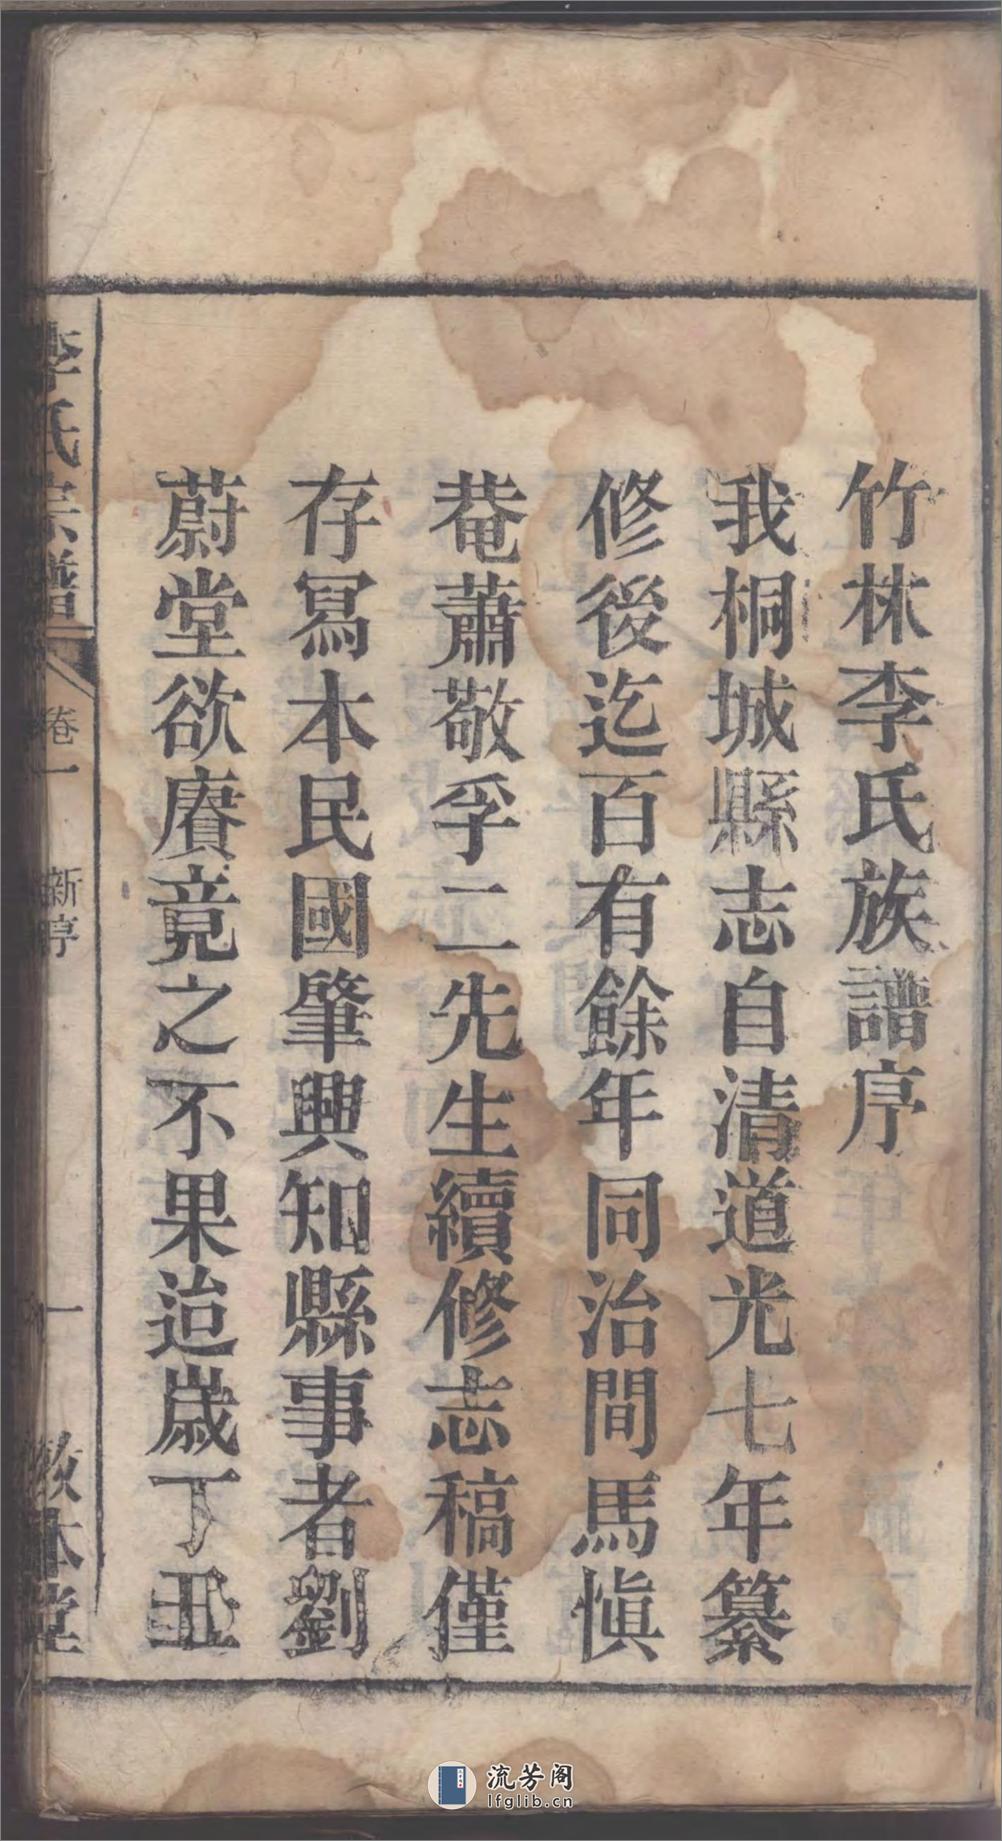 竹林李氏族譜序
我桐城縣志自清道光七年纂
修後迄百有餘年同治間馬愼
菴蕭敬孚二先生續修志稿僅
存冩本民國肇興知縣事者劉
蔚堂欲賡竟之不果迨歲丁丑
李氏宗譜
卷一
新序
一
敘本堂
流芳阁
lfglib.cn